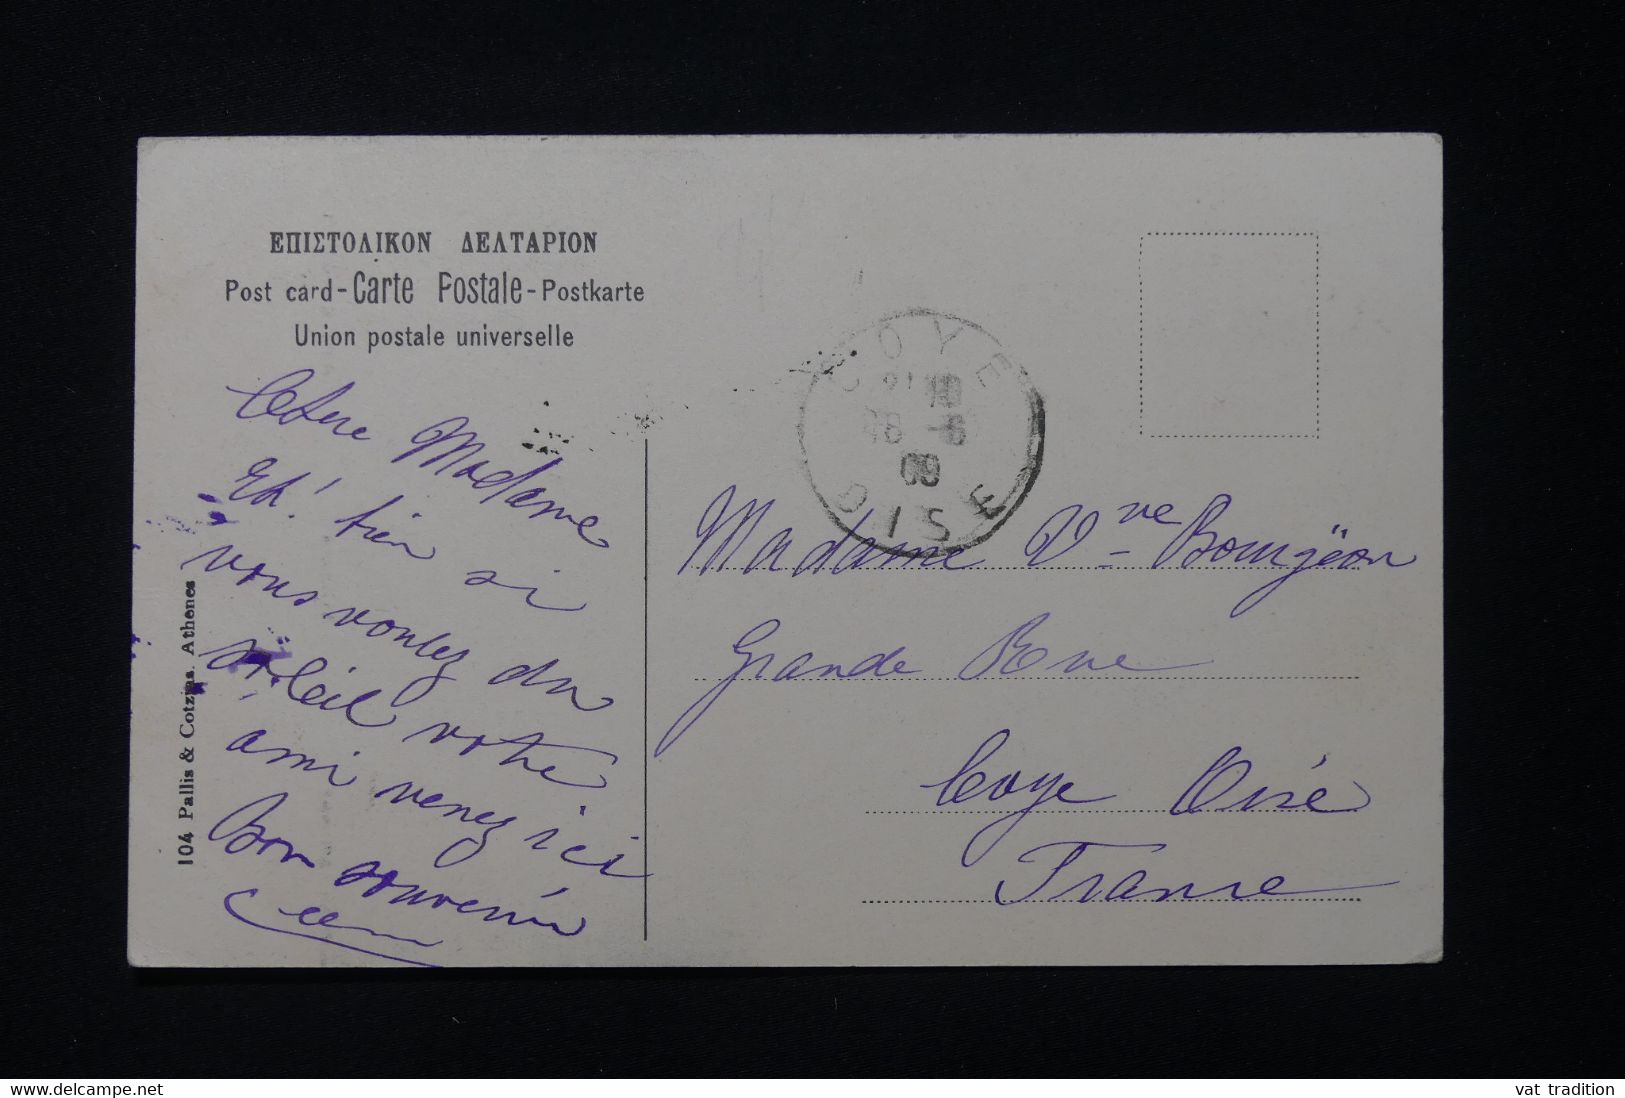 ΕΠΙΣΤΟΛΙΚΟΝ ΔΕΛΤΑΡΙΟΝ
Post card - Carte Postale - Postkarte
Union postale universelle
Chère Madame
Eh! bien si
vous voulez du
soleil votre
ami venez ici
Bon souvenir
104 Pallis & Cotzias. Athenes
COYE
18 -6
09
OISE
Madame Vve Bourgëon
Grande Rue
Coye Oise
France
delcampe.net
vat tradition